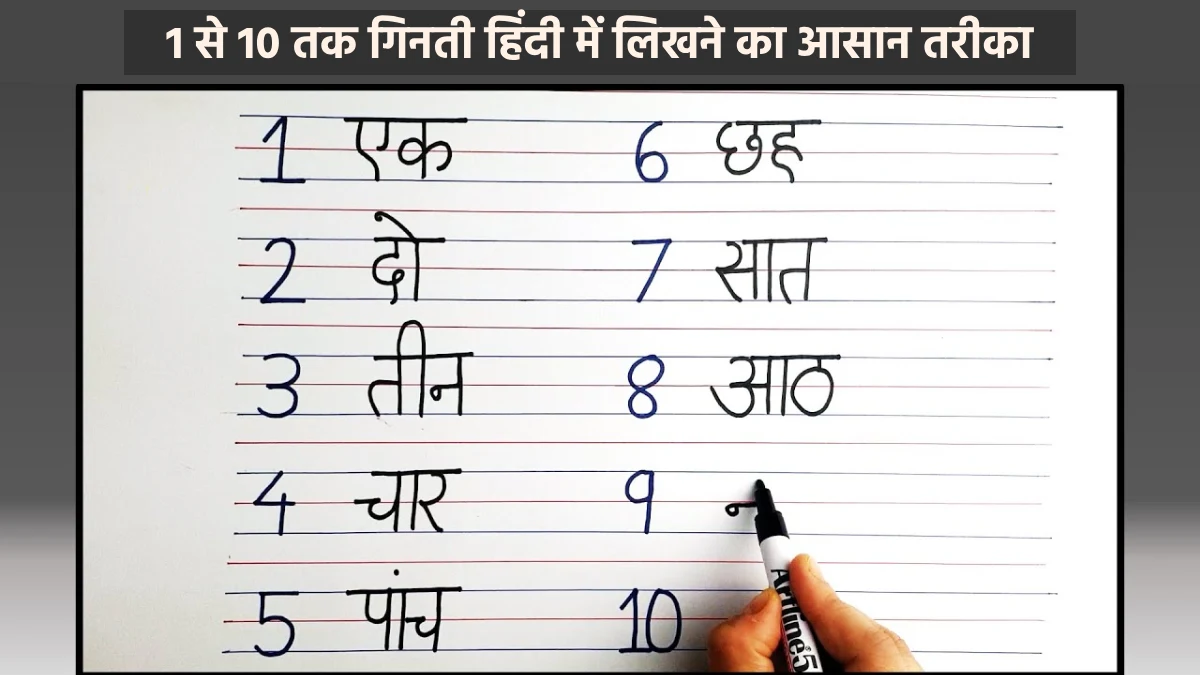 1 से 10 तक गिनती हिंदी में लिखने का आसान तरीका
1 एक
2 दो
3 तीन
4 चार
5 पांच
6 छह
7 सात
8 आठ
9
10
Artline 5